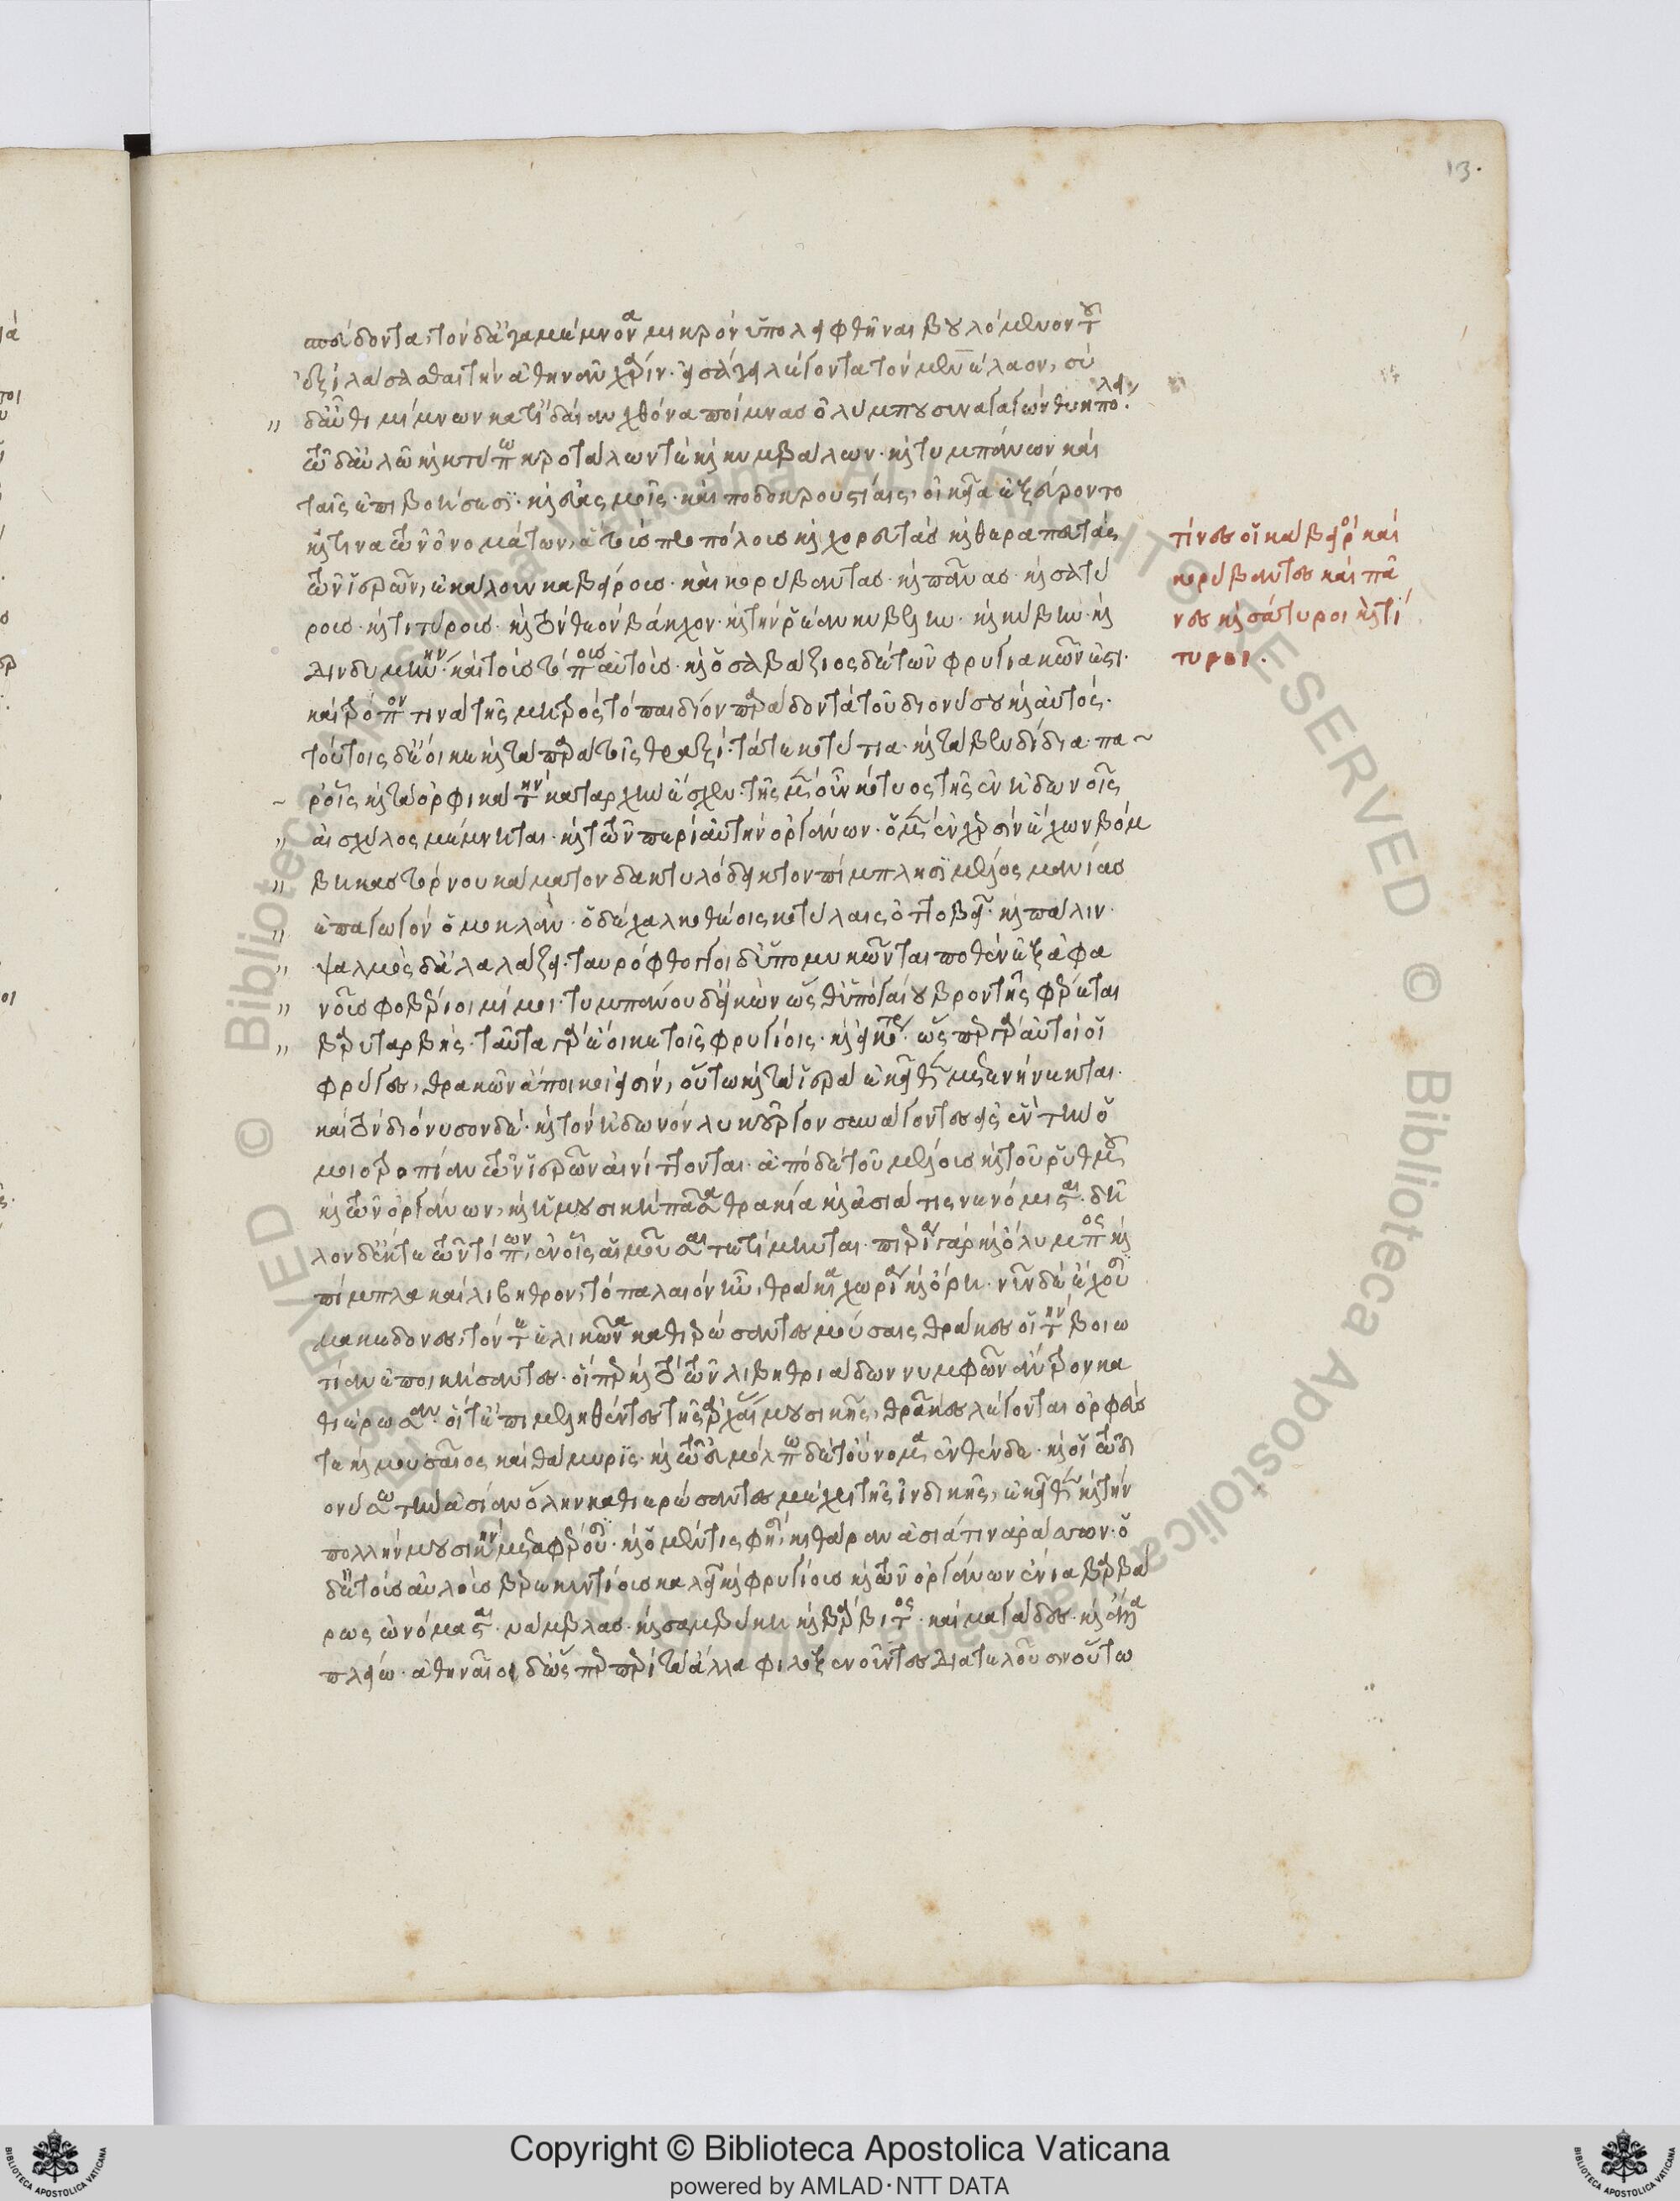 σπεύδοντα, τὸν δ' ἀγαμέμνονα μικρὸν ὑπολειφθῆναι βουλόμενον τοῦ
ἐξιλάσασθαι τὴν ἀθηνᾶν χάριν· εἰσάγει λέγοντα τὸν μενέλαον, σὺ
δ' αὖθι μίμνων κατ' ἰδαίαν χθόνα ποίμνας ὀλύμπου συναγαγὼν θυηπόλει·
τῷ δ' αὐλῷ καὶ κτύπῳ κροτάλων τε καὶ κυμβάλων· καὶ τυμπάνων καὶ
ταῖς ἐπιβοήσεσι· καὶ εὐασμοῖς· καὶ ποδοκρουστίαις, οἰκεῖα ἐξεύροντο
καί τινα τῶν ὀνομάτων, ἃ τοὺς προπόλους καὶ χορευτὰς καὶ θεραπευτὰς
τῶν ἱερῶν, ἐκάλουν καβείρους· καὶ κορύβαντας· καὶ πᾶνας· καὶ σατύ
ρους· καὶ τιτύρους· καὶ τὸν θεὸν βάκχον· καὶ τὴν ῥέαν κυβέλην· καὶ κύβην· καὶ
δινδυμήνην· καὶ τοὺς τόπους αὐτούς· καὶ ὁ σαβάζιος δὲ τῶν φρυγιακῶν ἐστι·
καὶ τρόπον τινὰ τῆς μητρὸς τὸ παιδίον παραδόντα τοῦ διονύσου καὶ αὐτός·
τούτοις δ' ἔοικε καὶ τὰ παρὰ τοῖς θραξί· τά τε κοτύτια· καὶ τὰ βενδίδια· πα
ρ' οἷς καὶ τὰ ὀρφικὰ τὴν καταρχὴν ἔσχεν· τῆς μὲν οὖν κότυος τῆς ἐν ἠδωνοῖς
αἰσχύλος μέμνηται· καὶ τῶν περὶ αὐτὴν ὀργάνων· ὁ μὲν ἐν χερσὶν ἔχων βόμ
βηκας τόρνου κάματον δακτυλόδεικτον πίμπλησι μέλος μανίας
ἐπαγωγὸν ὁμοκλάν· ὁ δὲ χαλκοθέοις κοτύλαις ὀττοβεῖ· καὶ πάλιν·
ψαλμὸς δ' ἀλαλάζει· ταυρόφθογγοι δ' ὑπομυκῶνται ποθὲν ἐξ ἀφα
νοῦς φοβέριοι μῖμοι· τυμπάνου δ' εἰκὼν ὥσθ' ὑπογαίου βροντῆς φέρεται
βαρυταρβής· ταῦτα γὰρ ἔοικε τοῖς φρυγίοις· καὶ εἰκότως· ὥσπερ γὰρ αὐτοὶ οἱ
φρύγες, θρακῶν ἄποικοί εἰσιν, οὕτω καὶ τὰ ἱερὰ ἐκεῖθεν μετενήνεκται·
καὶ τὸν διόνυσον δὲ· καὶ τὸν ἠδωνὸν λυκοῦργον συνάγοντες εἰς ἓν τὴν ὁ
μοιοτροπίαν τῶν ἱερῶν αἰνίττονται· ἀπὸ δὲ τοῦ μέλους καὶ τοῦ ῥυθμοῦ
καὶ τῶν ὀργάνων, καὶ ἡ μουσικὴ πᾶσα θρακία καὶ ἀσιάτις νενόμισται· δῆ
λον δ' ἔκ τε τῶν τόπων, ἐν οἷς αἱ μοῦσαι τετίμηνται· πιερία γὰρ καὶ ὄλυμπος καὶ
πίμπλα καὶ λίβηθρον, τὸ παλαιὸν ἦν, θράκια χωρία καὶ ὄρη· νῦν δὲ ἔχουσι
μακεδόνες, τόν τε ἑλικῶνα καθιέρωσαν ταῖς μούσαις θρᾷκες οἱ τὴν βοιω
τίαν ἐποικήσαντες· οἵπερ καὶ τὸ τῶν λιβηθριάδων νυμφῶν ἄντρον κα
θιέρωσαν· οἵ τ' ἐπιμεληθέντες τῆς ἀρχαίας μουσικῆς, θρᾷκες λέγονται ὀρφεύς
τε καὶ μουσαῖος καὶ θάμυρις· καὶ τῷ εὐμόλπῳ δὲ τοὔνομα ἐνθένδε· καὶ οἱ τῷ δι
ονύσῳ τὴν ἀσίαν ὅλην καθιερώσαντες μέχρι τῆς ἰνδικῆς, ἐκεῖθεν καὶ τὴν
πολλὴν μουσικὴν μεταφέρουσι· καὶ ὁ μέν τίς φησι, κιθάραν ἀσιάτιν ἀράσσων· ὁ
δὲ τοὺς αὐλοὺς βερεκυντίους καλεῖ καὶ φρυγίους· καὶ τῶν ὀργάνων ἔνια βαρβά
ρως ὠνόμασται· νάμβλας· καὶ σαμβύκη· καὶ βάρβιτος· καὶ μαγάδις· καὶ ἄλλα
πλείω· ἀθηναῖοι δ' ὥσπερ περὶ τὰ ἄλλα φιλοξενοῦντες διατελοῦσιν οὕτω
τίνες οἱ κάβειροι καὶ
κορύβαντες καὶ πᾶ
νες καὶ σάτυροι καὶ τί
τυροι·
13.
Copyright © Biblioteca Apostolica Vaticana
powered by AMLAD·NTT DATA